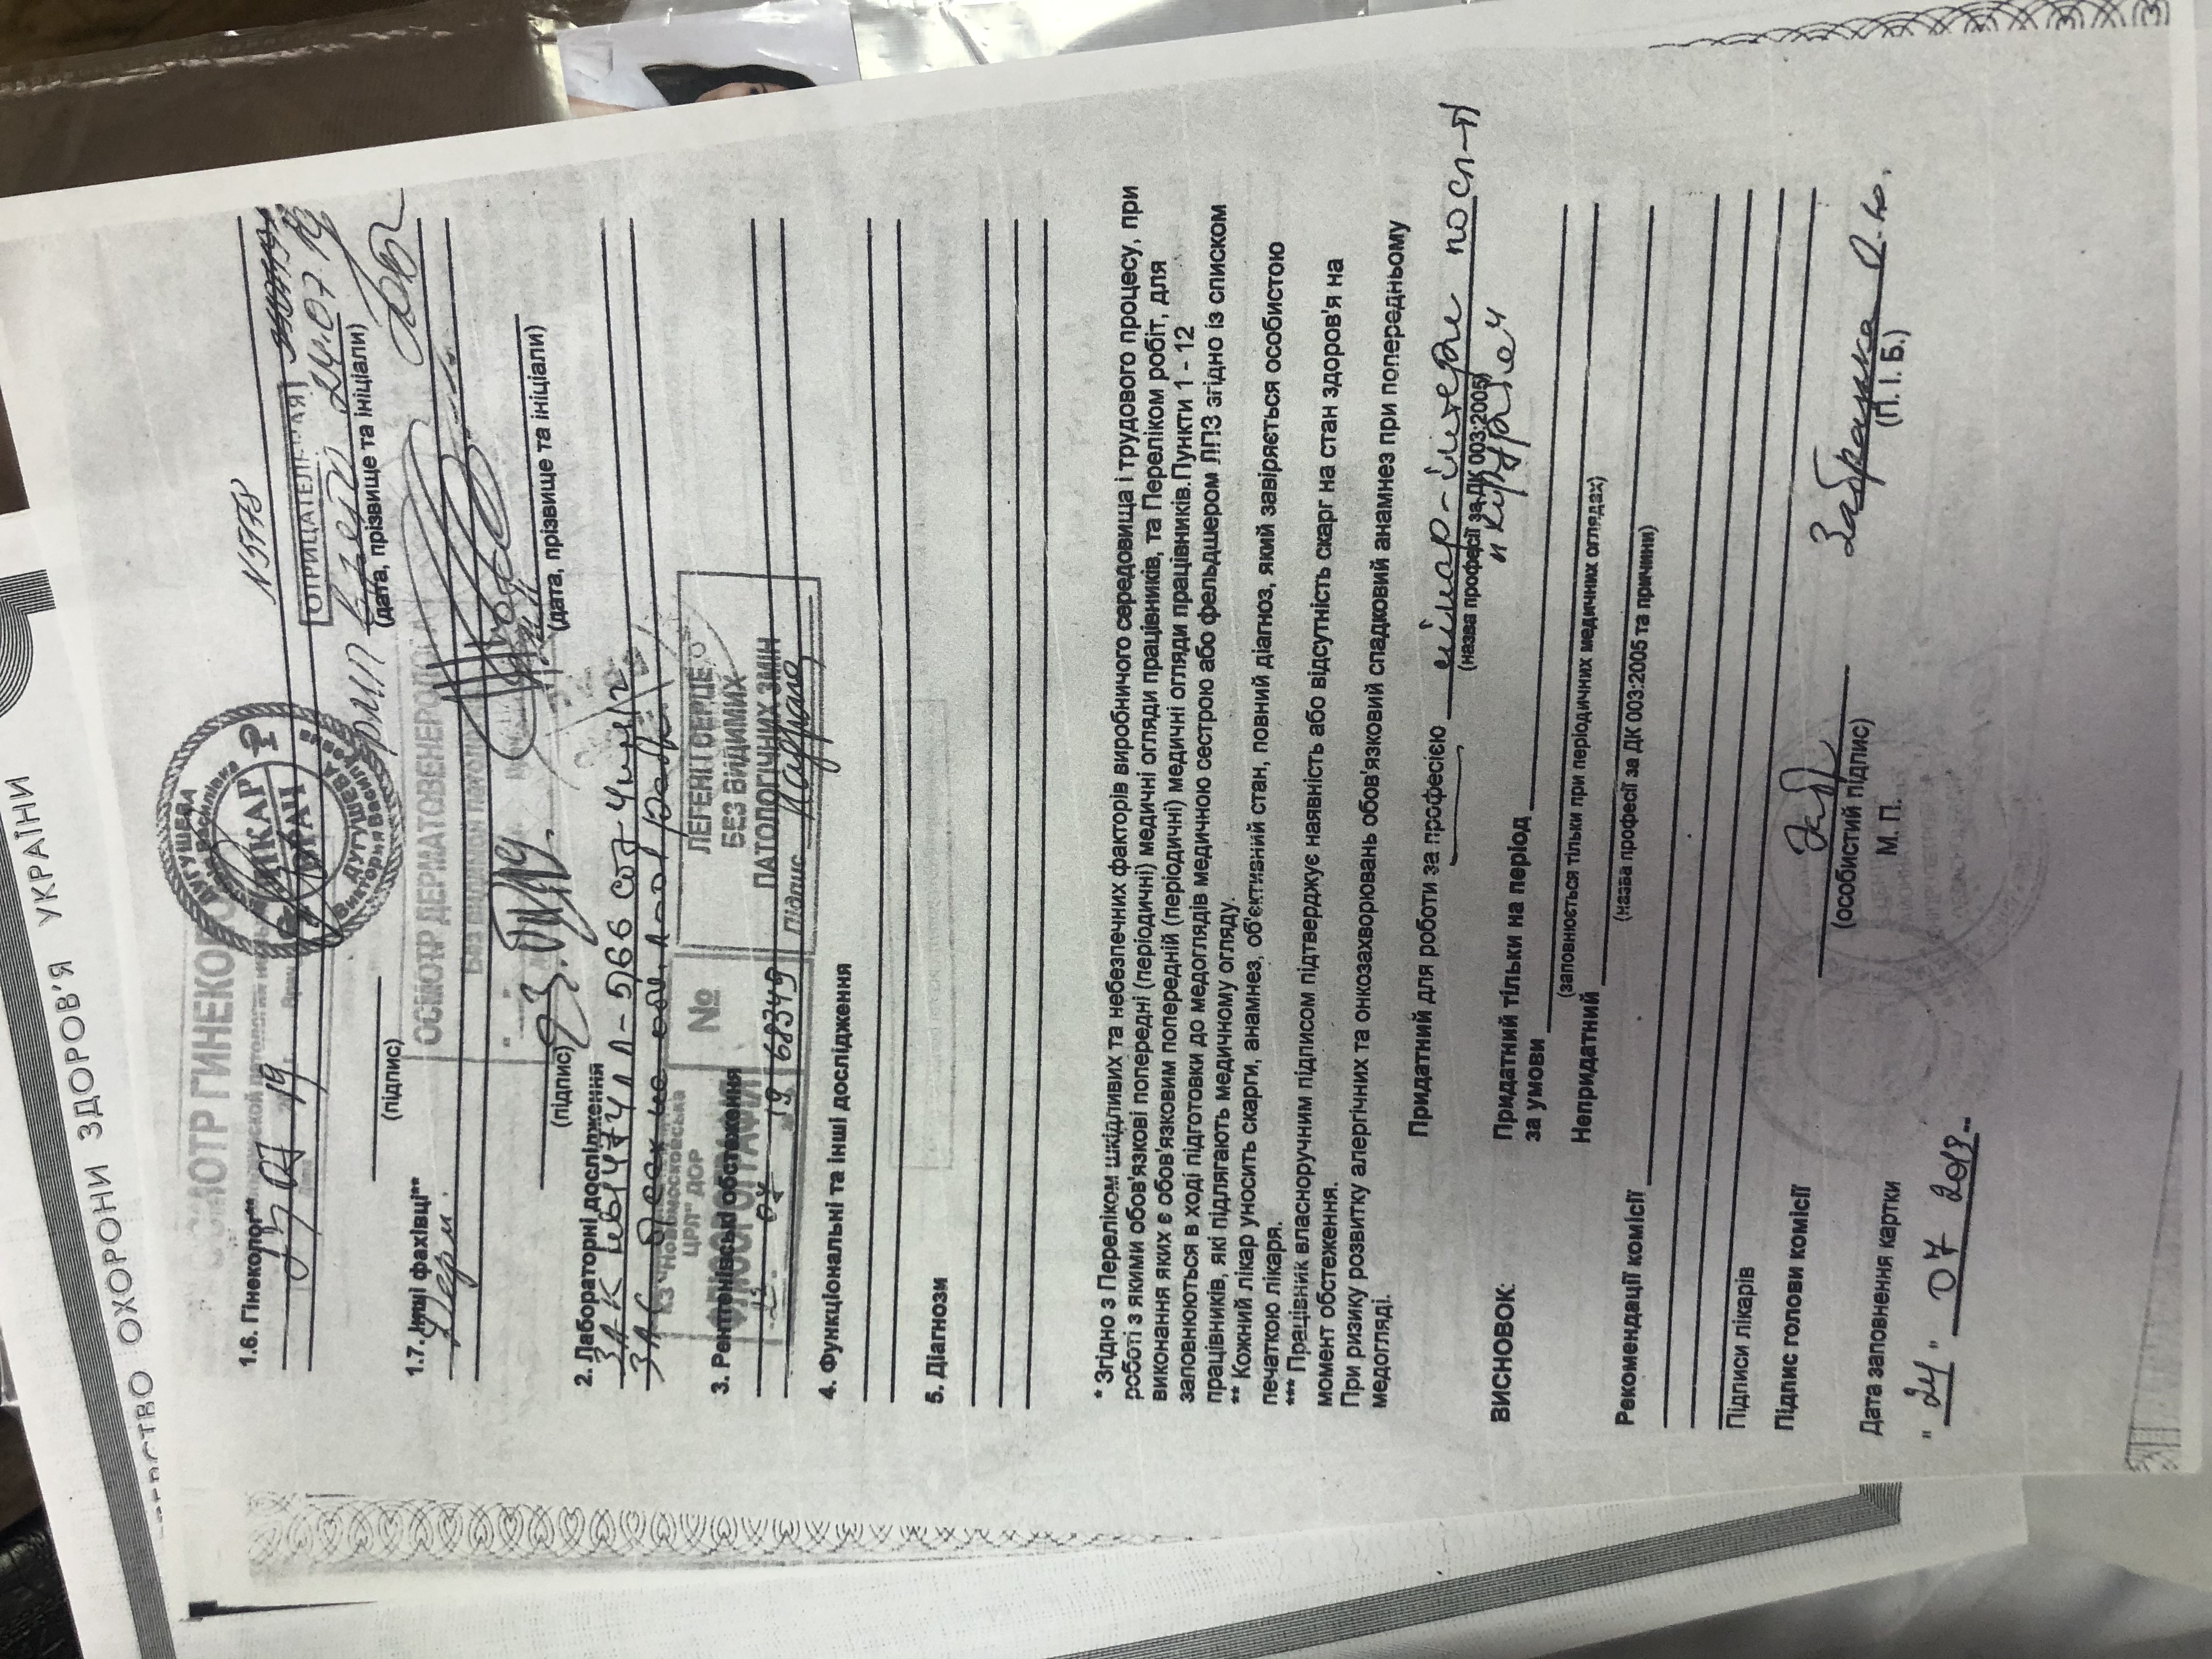 ОХОРОНИ ЗДОРОВ'Я УКРАЇНИ
ОСМОТР ГИНЕКОЛО
1.6. Гінеколог**
23 07 19
ДУГУШЕВА
Василівна
ЛІКАР
ВРАЧ
ДУГУШЕВА
Виктория Васильевна
N5178
ОТРИЦАТЕЛЬНАЯ
РМП взято 24.07.19
(підпис)
(дата, прізвище та ініціали)
1.7. Інші фахівці**
Дерм.
ОСМОТР ДЕРМАТОВЕНЕРОЛОГА
Без видимой патологии
23.VII.19.
(підпис)
(дата, прізвище та ініціали)
2. Лабораторні дослідження
ЗАК 5,66
ЗАС
КЗ "Новомосковська
ЦРЛ" ДОР
ФЛЮОРОГРАФІЯ
07 19
№
68349
ЛЕГЕНІ І СЕРЦЕ
БЕЗ ВИДИМИХ
ПАТОЛОГІЧНИХ ЗМІН
Підпис
3. Рентгенівські обстеження
4. Функціональні та інші дослідження
5. Діагнози
* Згідно з Переліком шкідливих та небезпечних факторів виробничого середовища і трудового процесу, при
роботі з якими обов'язкові попередні (періодичні) медичні огляди працівників, та Переліком робіт, для
виконання яких є обов'язковим попередній (періодичні) медичні огляди працівників.Пункти 1 - 12
заповнюються в ході підготовки до медоглядів медичною сестрою або фельдшером ЛПЗ згідно із списком
працівників, які підлягають медичному огляду.
** Кожний лікар уносить скарги, анамнез, об'єктивний стан, повний діагноз, який завіряється особистою
печаткою лікаря.
*** Працівник власноручним підписом підтверджує наявність або відсутність скарг на стан здоров'я на
момент обстеження.
При ризику розвитку алергічних та онкозахворювань обов'язковий спадковий анамнез при попередньому
медогляді.
Придатний для роботи за професією лікар-інтерн
(назва професії за ДК 003:2005)
"хірургія"
ВИСНОВОК:
Придатний тільки на період
за умови
(заповнюється тільки при періодичних медичних оглядах)
Непридатний
(назва професії за ДК 003:2005 та причини)
Рекомендації комісії
Підписи лікарів
Підпис голови комісії
(особистий підпис)
М. П.
(П. І. Б.)
Дата заповнення картки
"24" 07 2019